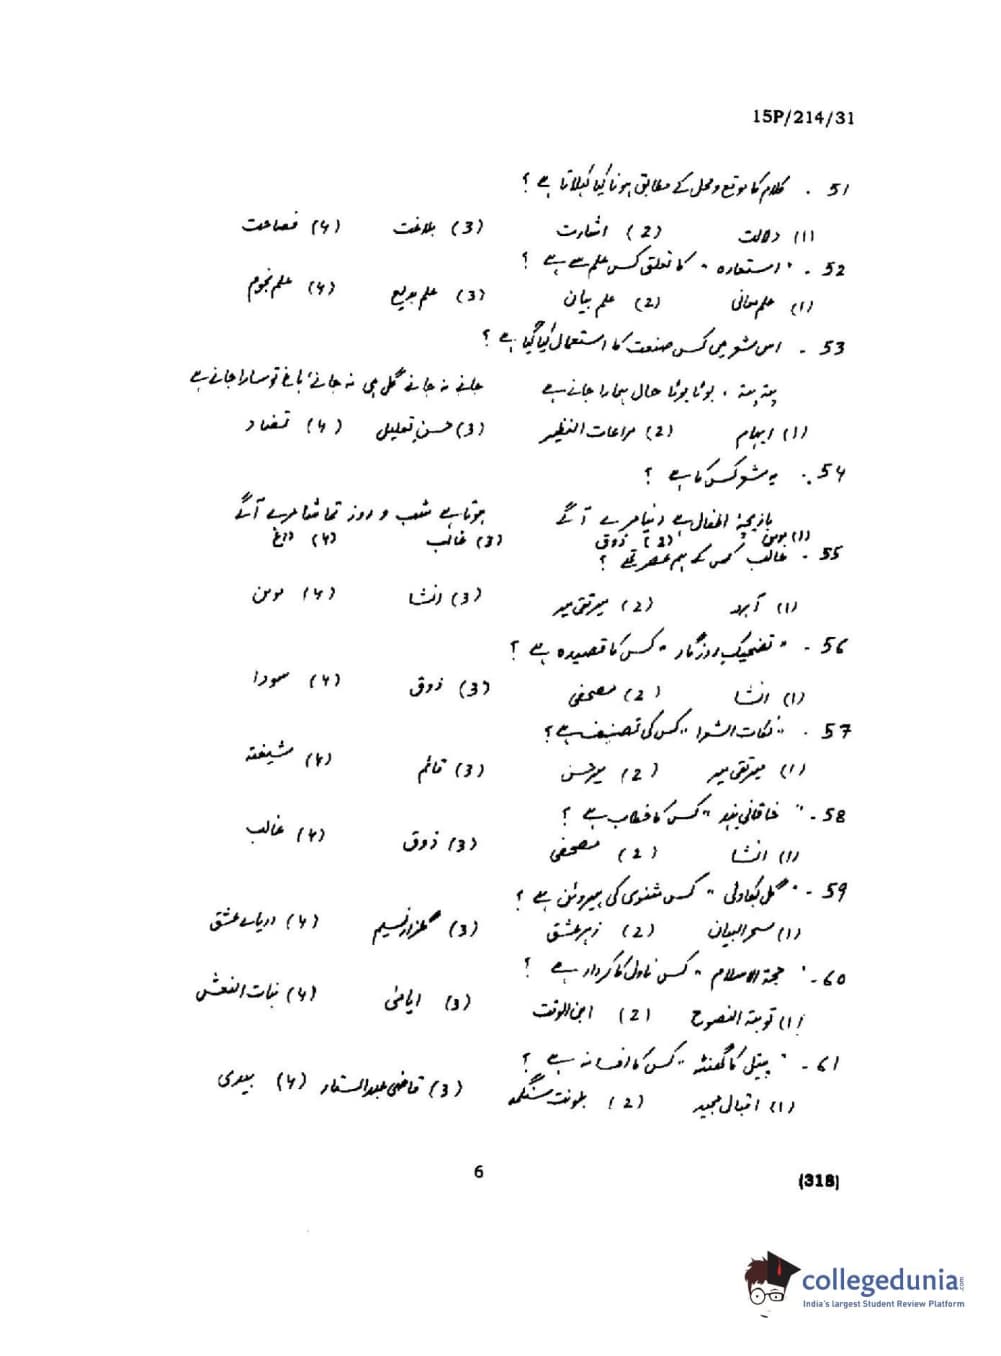 15P/214/31
51 . کلام کا موقع و محل کے مطابق ہونا کیا کہلاتا ہے ؟
(1) دلالت (2) اشارت (3) بلاغت (4) فصاحت
52 . "استعارہ" کا تعلق کس علم سے ہے ؟
(1) علم معانی (2) علم بیان (3) علم بدیع (4) علم نجوم
53 . اس شعر میں کس صنعت کا استعمال کیا گیا ہے ؟
پتہ پتہ ، بوٹا بوٹا حال ہمارا جانے ہے جانے نہ جانے گل ہی نہ جانے، باغ تو سارا جانے ہے
(1) ایہام (2) مراعات النظیر (3) حسن تعلیل (4) تضاد
54 . یہ شعر کس کا ہے ؟
بازیچۂ اطفال ہے دنیا مرے آگے ہوتا ہے شب و روز تماشا مرے آگے
(1) مومن (2) ذوق (3) غالب (4) داغ
55 . غالب کس کے ہم عصر تھے ؟
(1) آبرو (2) میر تقی میر (3) انشا (4) مومن
56 . "تضحیک روزگار" کس کا قصیدہ ہے ؟
(1) انشا (2) مصحفی (3) ذوق (4) سودا
57 . "نکات الشعرا" کس کی تصنیف ہے ؟
(1) میر تقی میر (2) میر حسن (3) قائم (4) شیفتہ
58 . "خاقانی ہند" کس کا خطاب ہے ؟
(1) انشا (2) مصحفی (3) ذوق (4) غالب
59 . "گل بکاولی" کس مثنوی کی ہیروئن ہے ؟
(1) سحرالبیان (2) زہر عشق (3) گلزار نسیم (4) دریائے عشق
60 . "حجۃ الاسلام" کس ناول کا کردار ہے ؟
(1) توبۃ النصوح (2) ابن الوقت (3) ایامیٰ (4) بنات النعش
61 . "پیتل کا گھنٹہ" کس کا افسانہ ہے ؟
(1) اقبال مجید (2) بلونت سنگھ (3) قاضی عبدالستار (4) بیدی
6
(318)
collegedunia.com
India's largest Student Review Platform